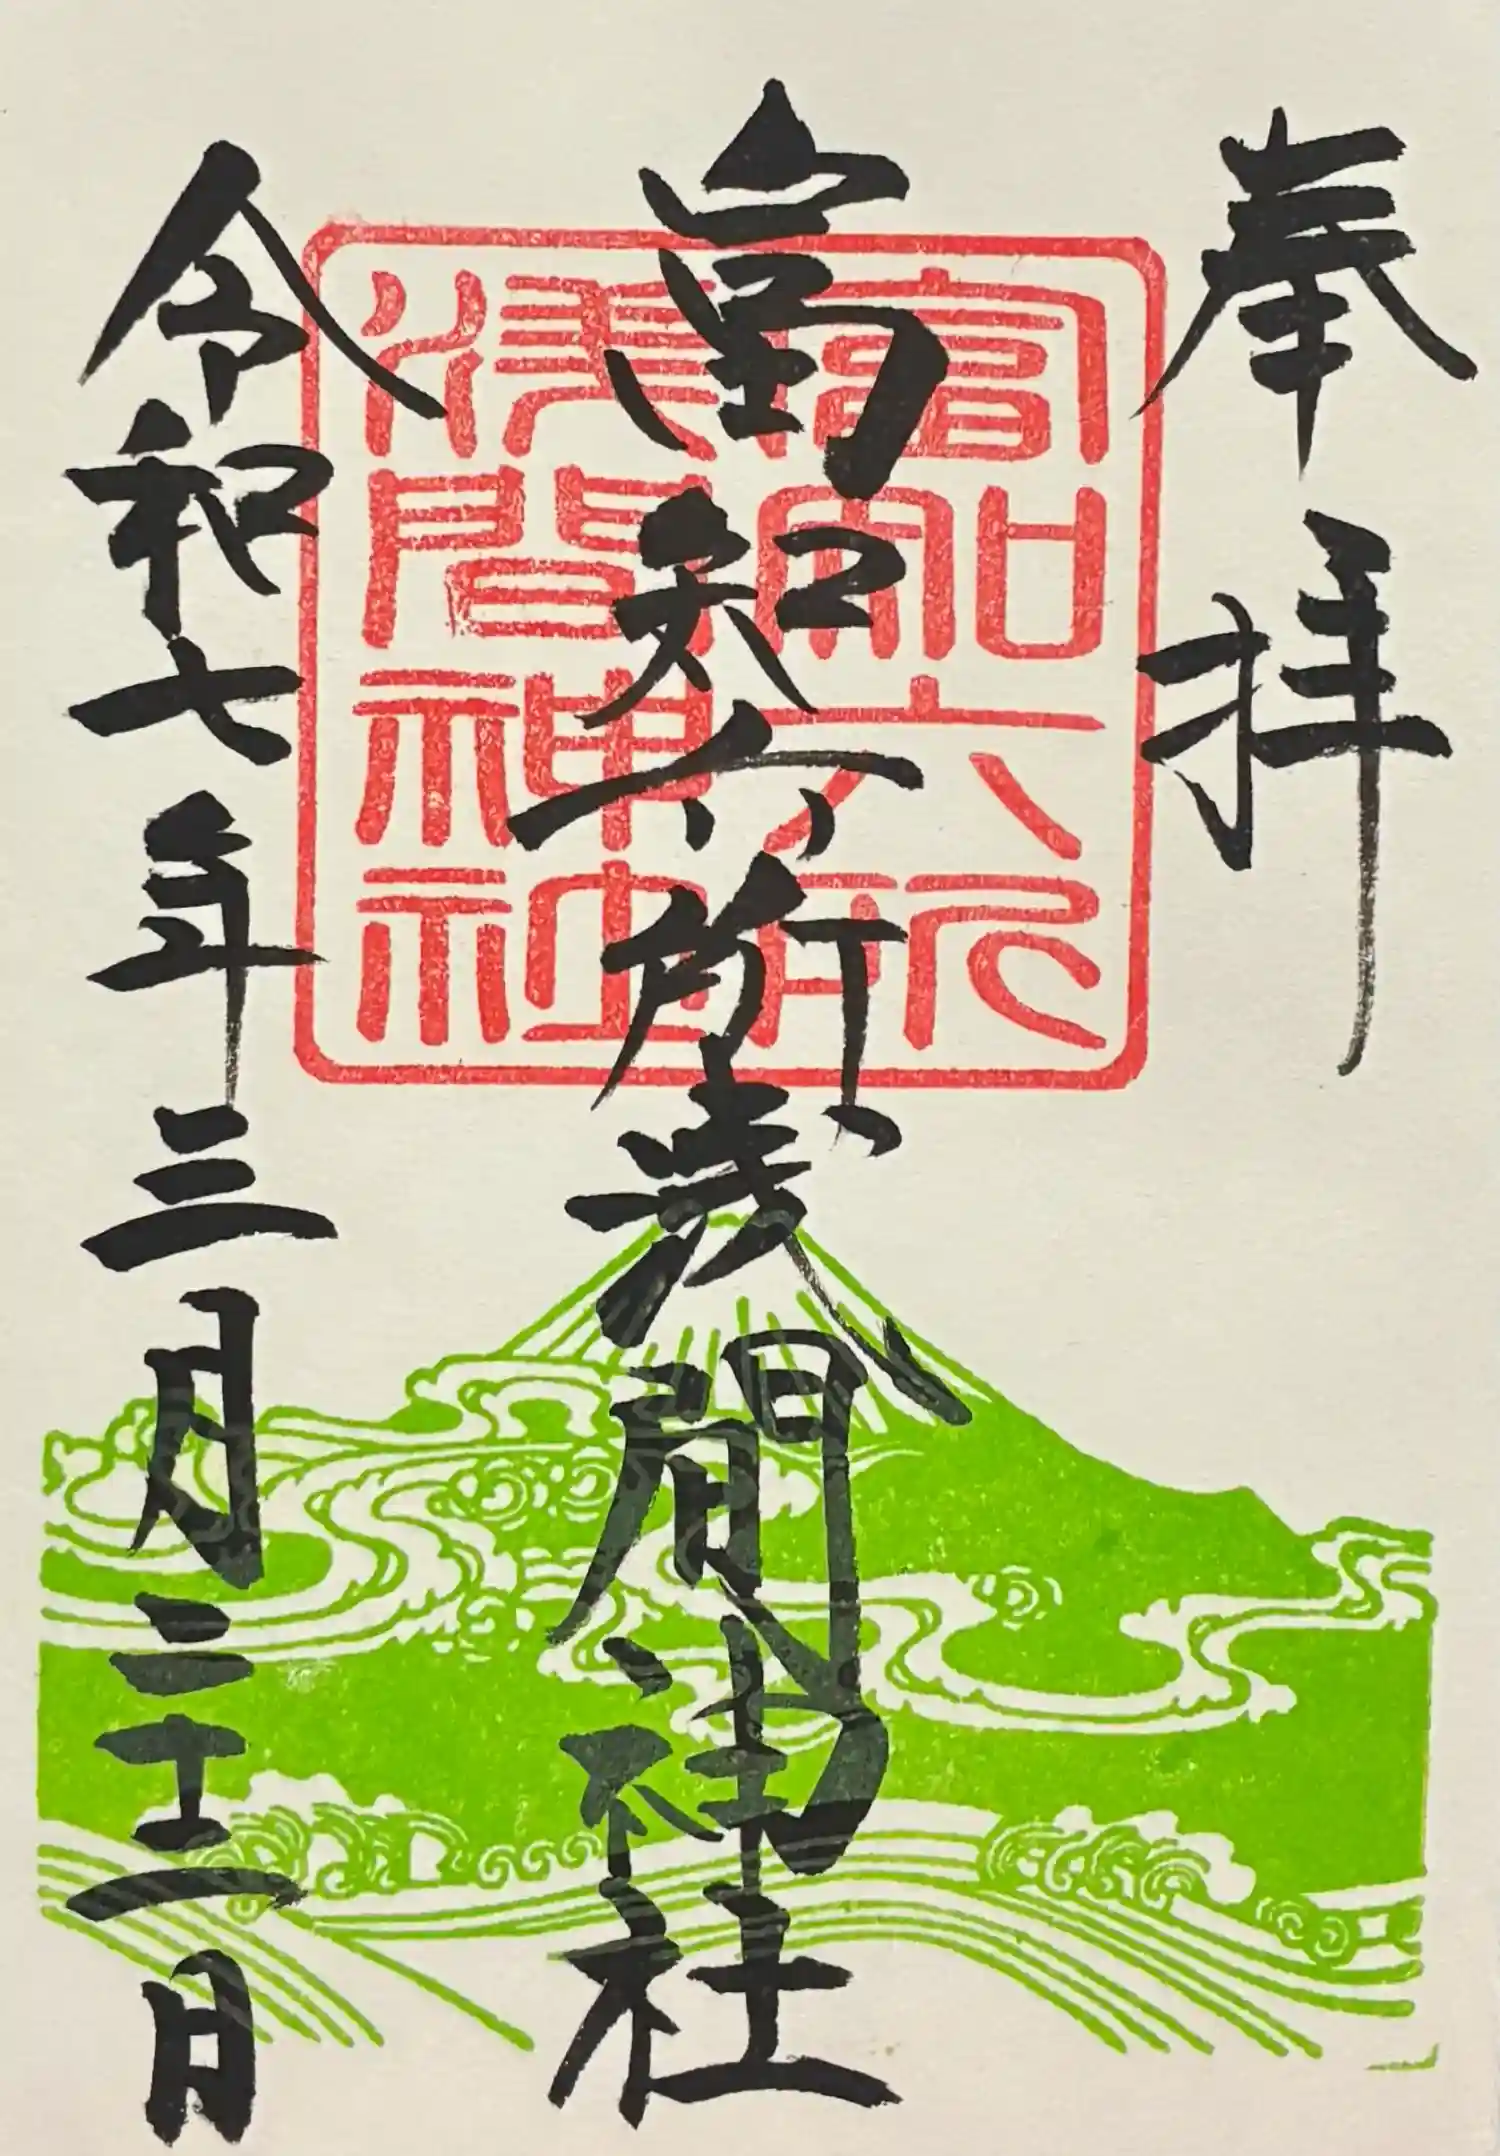 奉拝
富知六所浅間神社
令和七年三月二十一日
富知六所
浅間神社